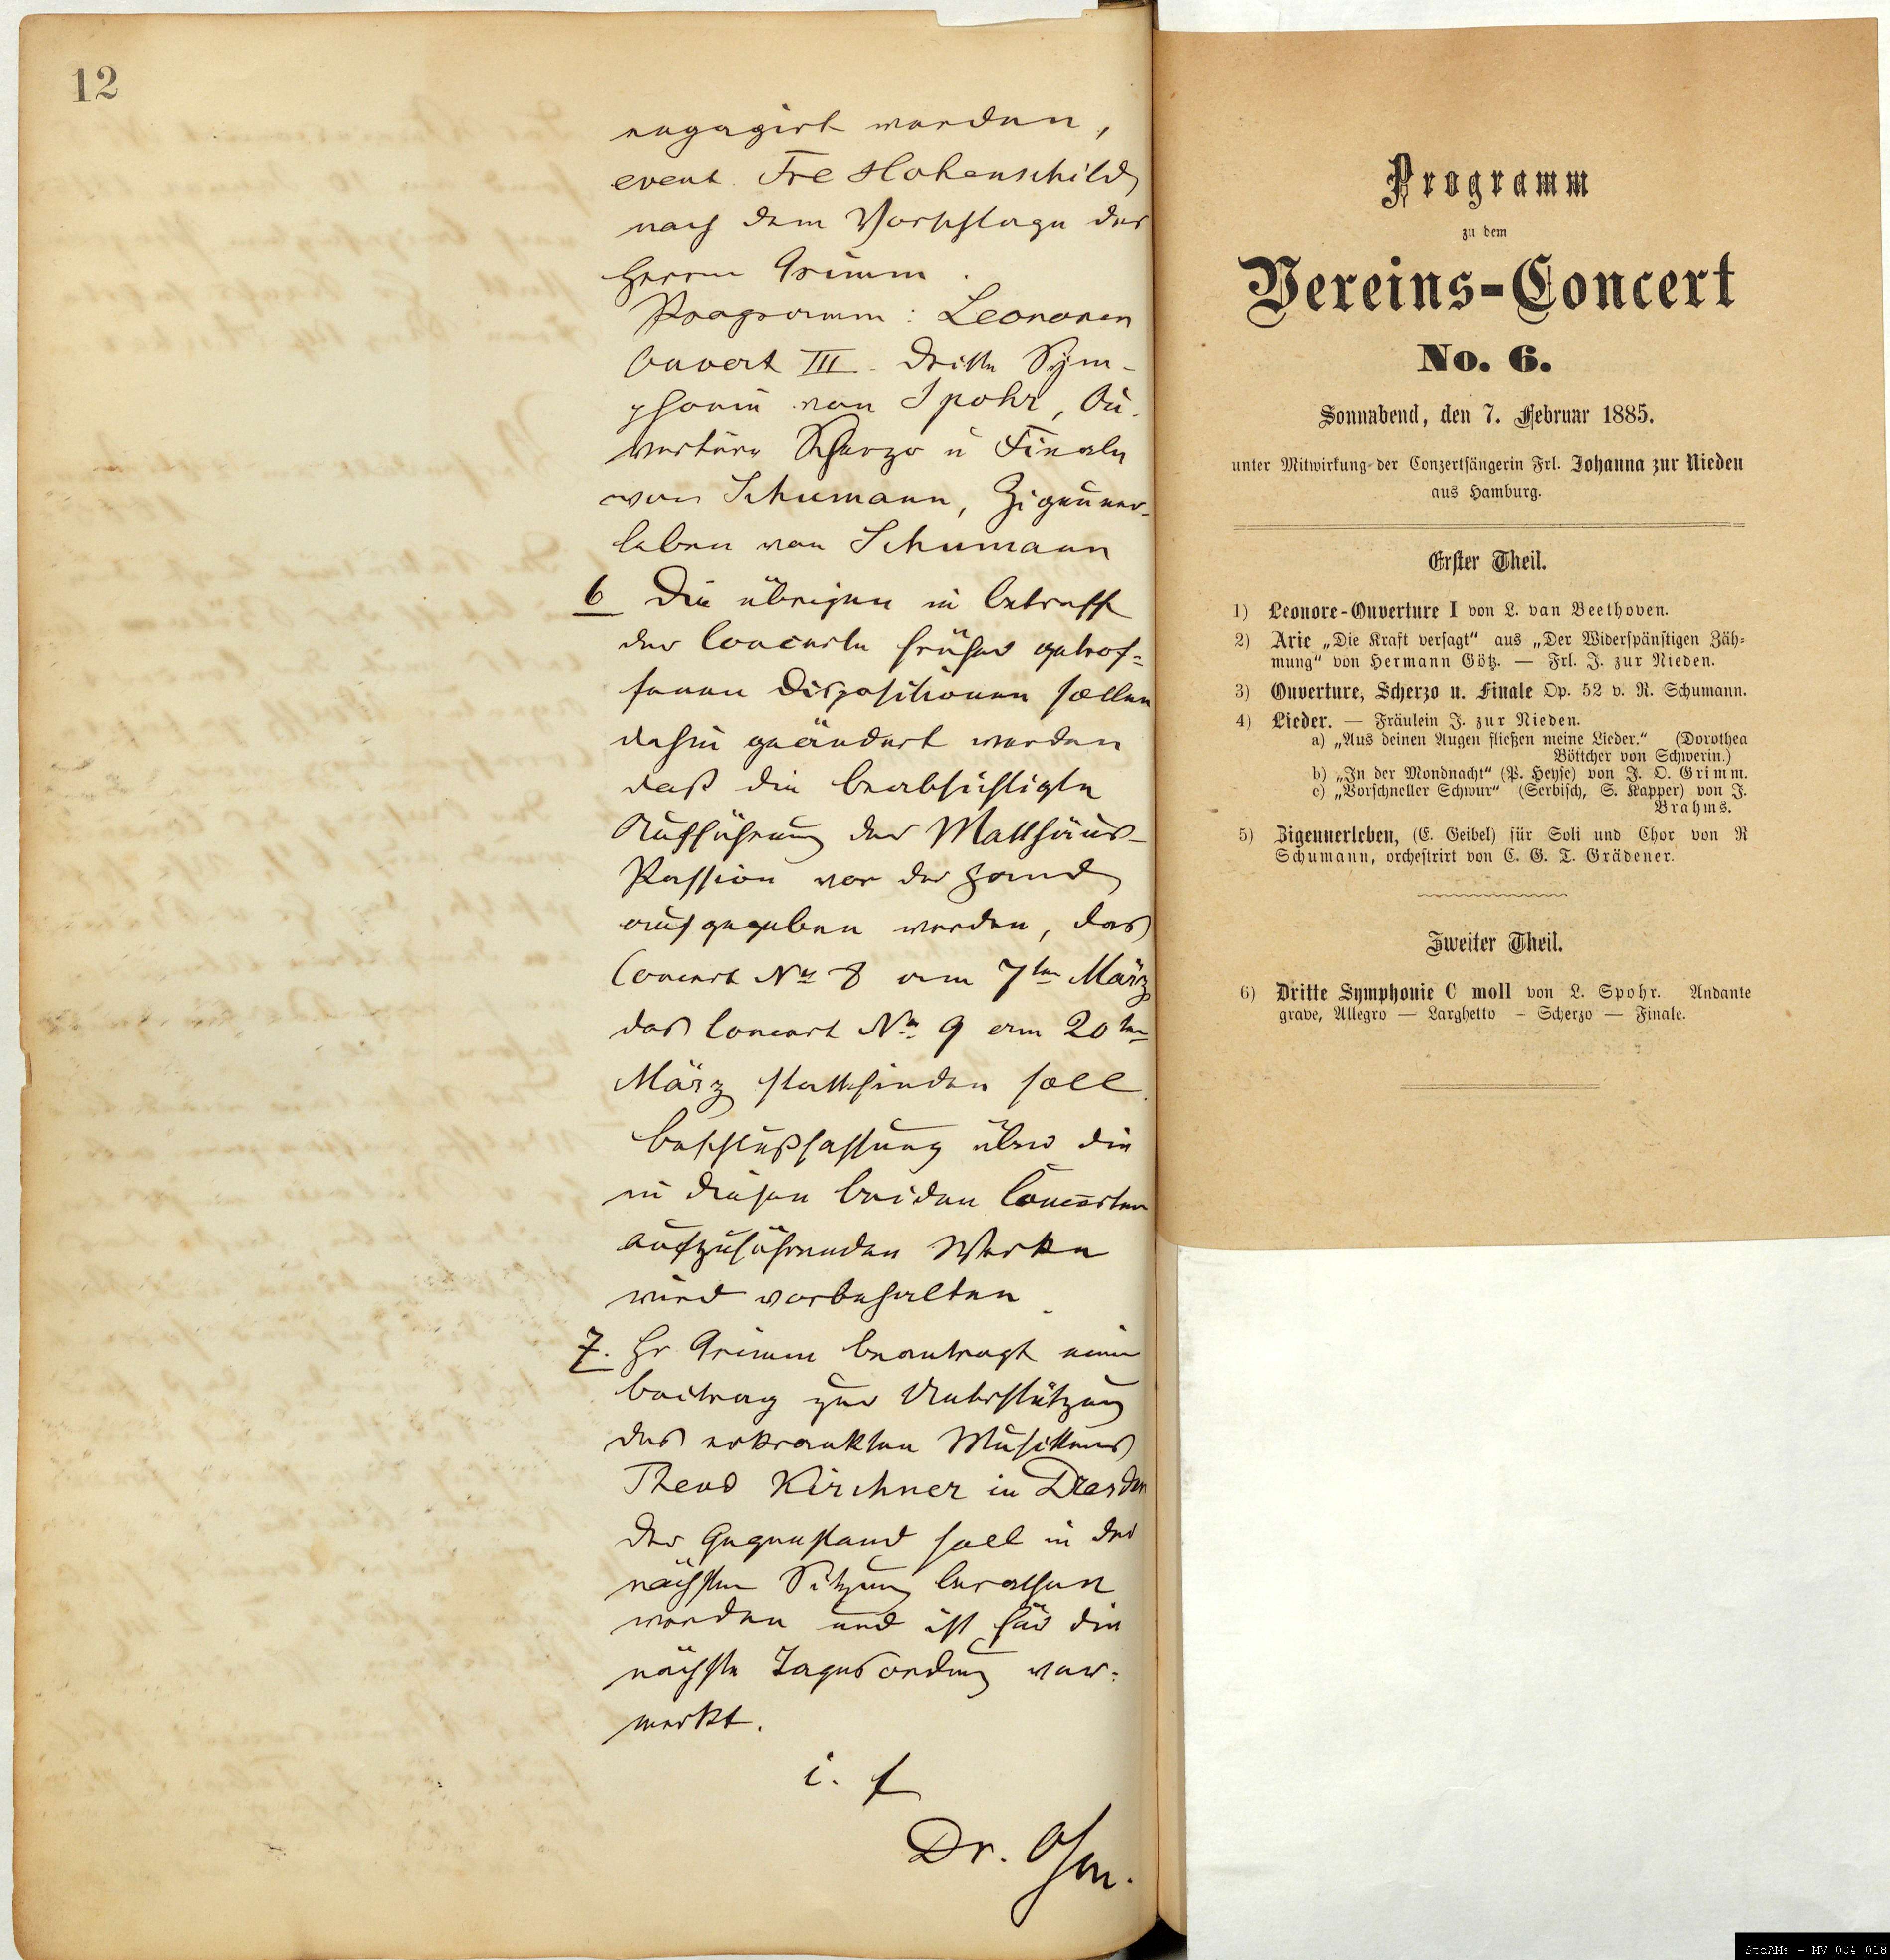 12
engagirt werden,
event. Frl Hohenschild
nach dem Vorschlage des
Herrn Grimm.
Programm: Leonoren
Ouvert III. Dritte Sym-
phonie von Spohr, Ou-
verture Scherzo u Finale
von Schumann, Zigeuner-
leben von Schumann
6 Die übrigen in betreff
der Concerte früher getrof-
fenen Dispositionen sollen
dahin geändert werden
daß die beabsichtigte
Aufführung der Matthäus-
Passion vor der Hand
aufgegeben werden, das
Concert No 8 am 7ten März
das Concert No 9 am 20ten
März stattfinden soll.
Beschlußfassung über die
in diesen beiden Concerten
aufzuführenden Werke
wird vorbehalten.
7. Hr Grimm beantragt einen
Beitrag zur Unterstützung
des erkrankten Musikers
Theod Kirchner in Dresden
der Gegenstand soll in der
nächsten Sitzung berathen
werden und ist für die
nächste Tagesordnung ver-
merkt.
i. f
Dr.
Programm
zu dem
Vereins-Concert
No. 6.
Sonnabend, den 7. Februar 1885.
unter Mitwirkung der Conzertsängerin Frl. Johanna zur Nieden
aus Hamburg.
Erster Theil.
1) Leonore-Ouverture I von L. van Beethoven.
2) Arie „Die Kraft versagt“ aus „Der Widerspänstigen Zäh-
mung“ von Hermann Götz. — Frl. J. zur Nieden.
3) Ouverture, Scherzo u. Finale Op. 52 v. R. Schumann.
4) Lieder. — Fräulein J. zur Nieden.
a) „Aus deinen Augen fließen meine Lieder.“ (Dorothea
Böttcher von Schwerin.)
b) „In der Mondnacht“ (P. Heyse) von J. O. Grimm.
c) „Vorschneller Schwur“ (Serbisch, S. Kapper) von J.
Brahms.
5) Zigeunerleben, (E. Geibel) für Soli und Chor von R
Schumann, orchestrirt von C. G. T. Grädener.
Zweiter Theil.
6) Dritte Symphonie C moll von L. Spohr. Andante
grave, Allegro — Larghetto – Scherzo — Finale.
StdAMs - MV_004_018